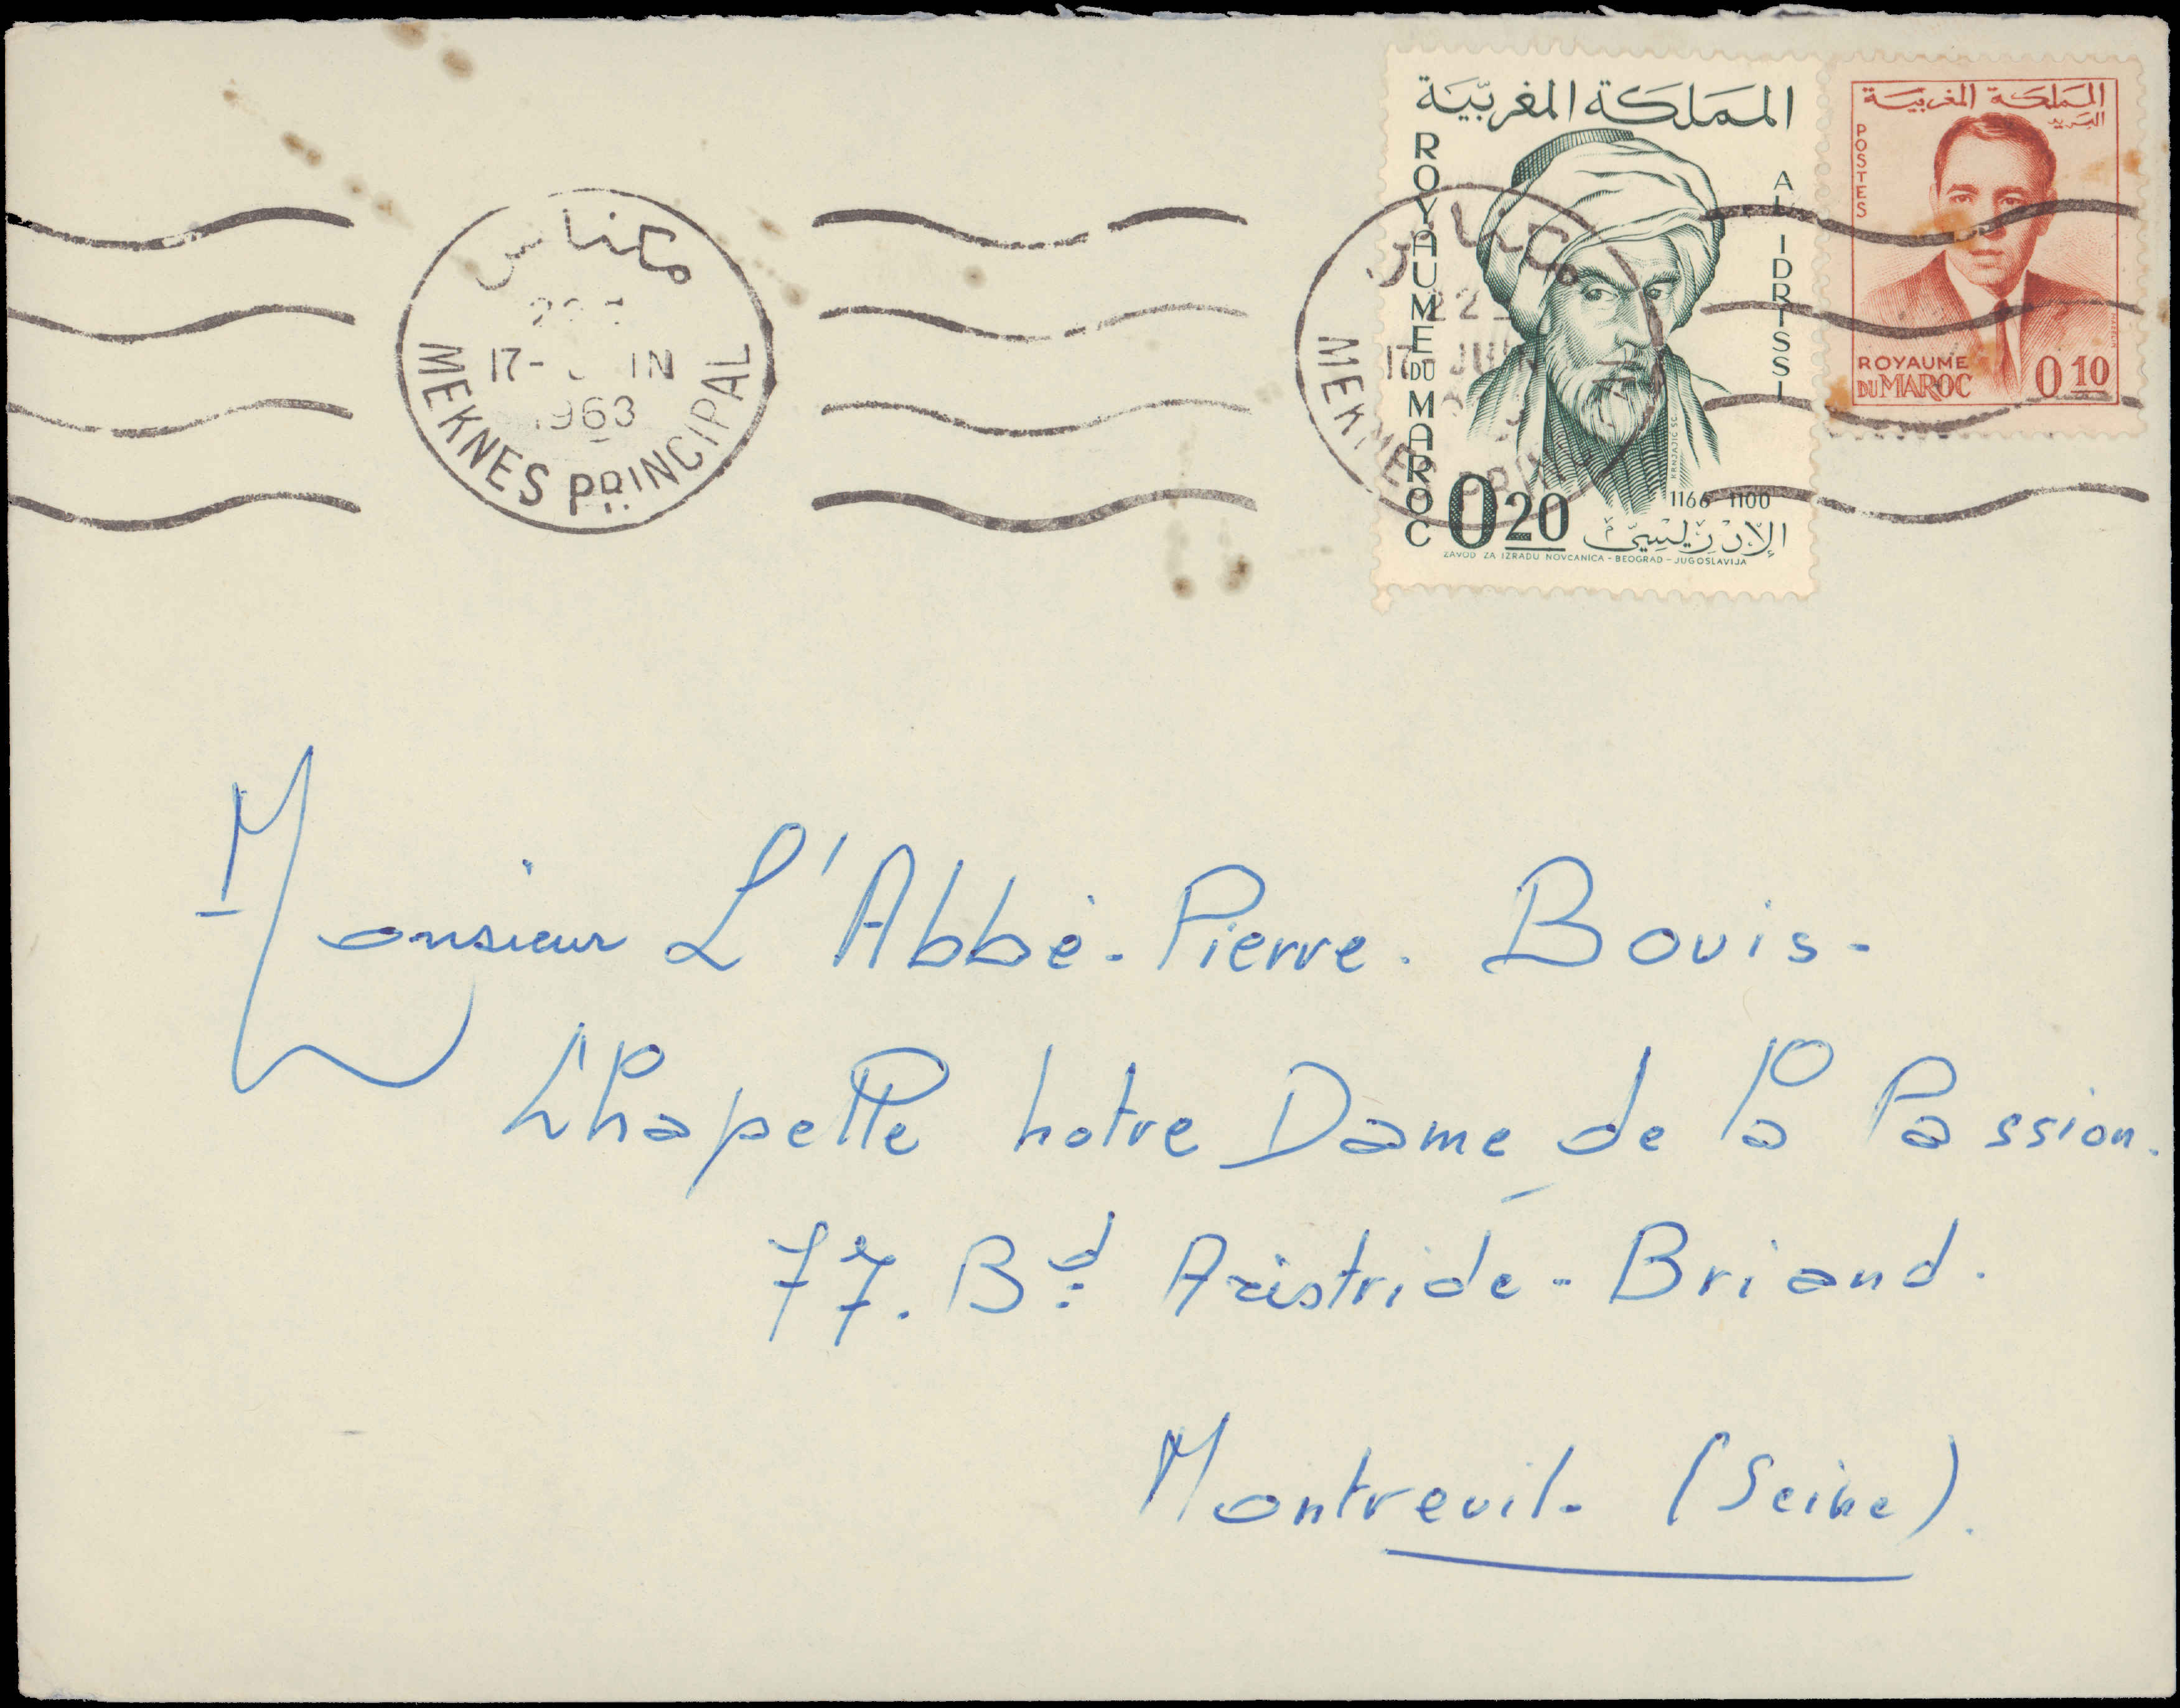 مكناس
17- JUIN
1963
MEKNES PRINCIPAL
مكناس
22
17 JUIN
MEKNES PRIN
المملكة المغربية
ROYAUME DU MAROC
AL IDRISSI
KRNJAJIC SC
0 20
1166 1100
الإدريسي
ZAVOD ZA IZRADU NOVCANICA - BEOGRAD - JUGOSLAVIJA
المملكة المغربية
البريد
POSTES
ROYAUME
DU MAROC
0 10
Monsieur L'Abbé - Pierre. Bouis -
Chapelle notre Dame de la Passion.
77. Bd Aristride - Briand.
Montreuil. (Seine).